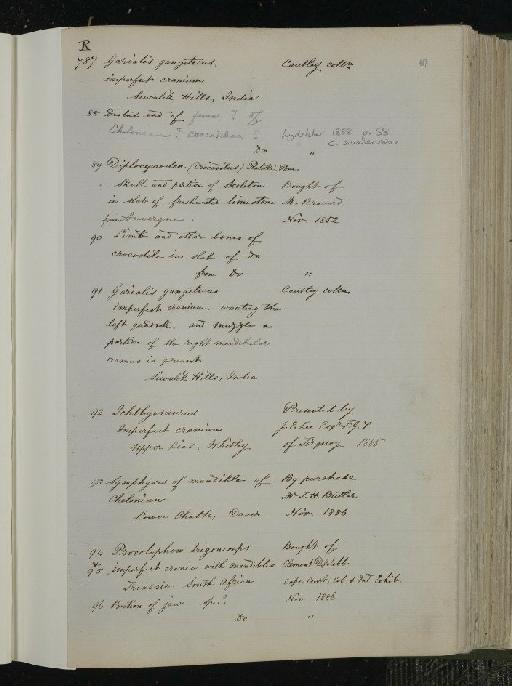 R
787 Garialis gangeticus. Cautley colln
imperfect cranium
Sewalik Hills, India
88 Distal end of femur ? of
Chelonian ? crocodilian ? Lydekker 1888 p. 88
Do "
89 Diplocynodon (Crocodilus)
Skull and portion of skeleton Bought of
in slab of freshwater limestone M.
from Auvergne. Nov. 1862
90 Limb and other bones of
crocodile in slab of Do
from Do "
91 Garialis gangeticus Cautley colln
imperfect cranium. wanting the
left and muzzle a
portion of the right mandibular
ramus is present
Sewalik Hills, India
92 Ichthyosaurus Present d by
Imperfect cranium Esqr F.G.S
Upper Lias, Whitby of 1885
93 Symphyses of mandibles of By purchase
Chelonian Mr S. H. Butler
Lower Chalk, Dover Nov. 1886
94 Procolophon trigoniceps Bought of
95 imperfect crania with mandible
Triassic South Africa Col & Ind Exhib.
96 Portion of jaw sp.? Nov 1886
Do "